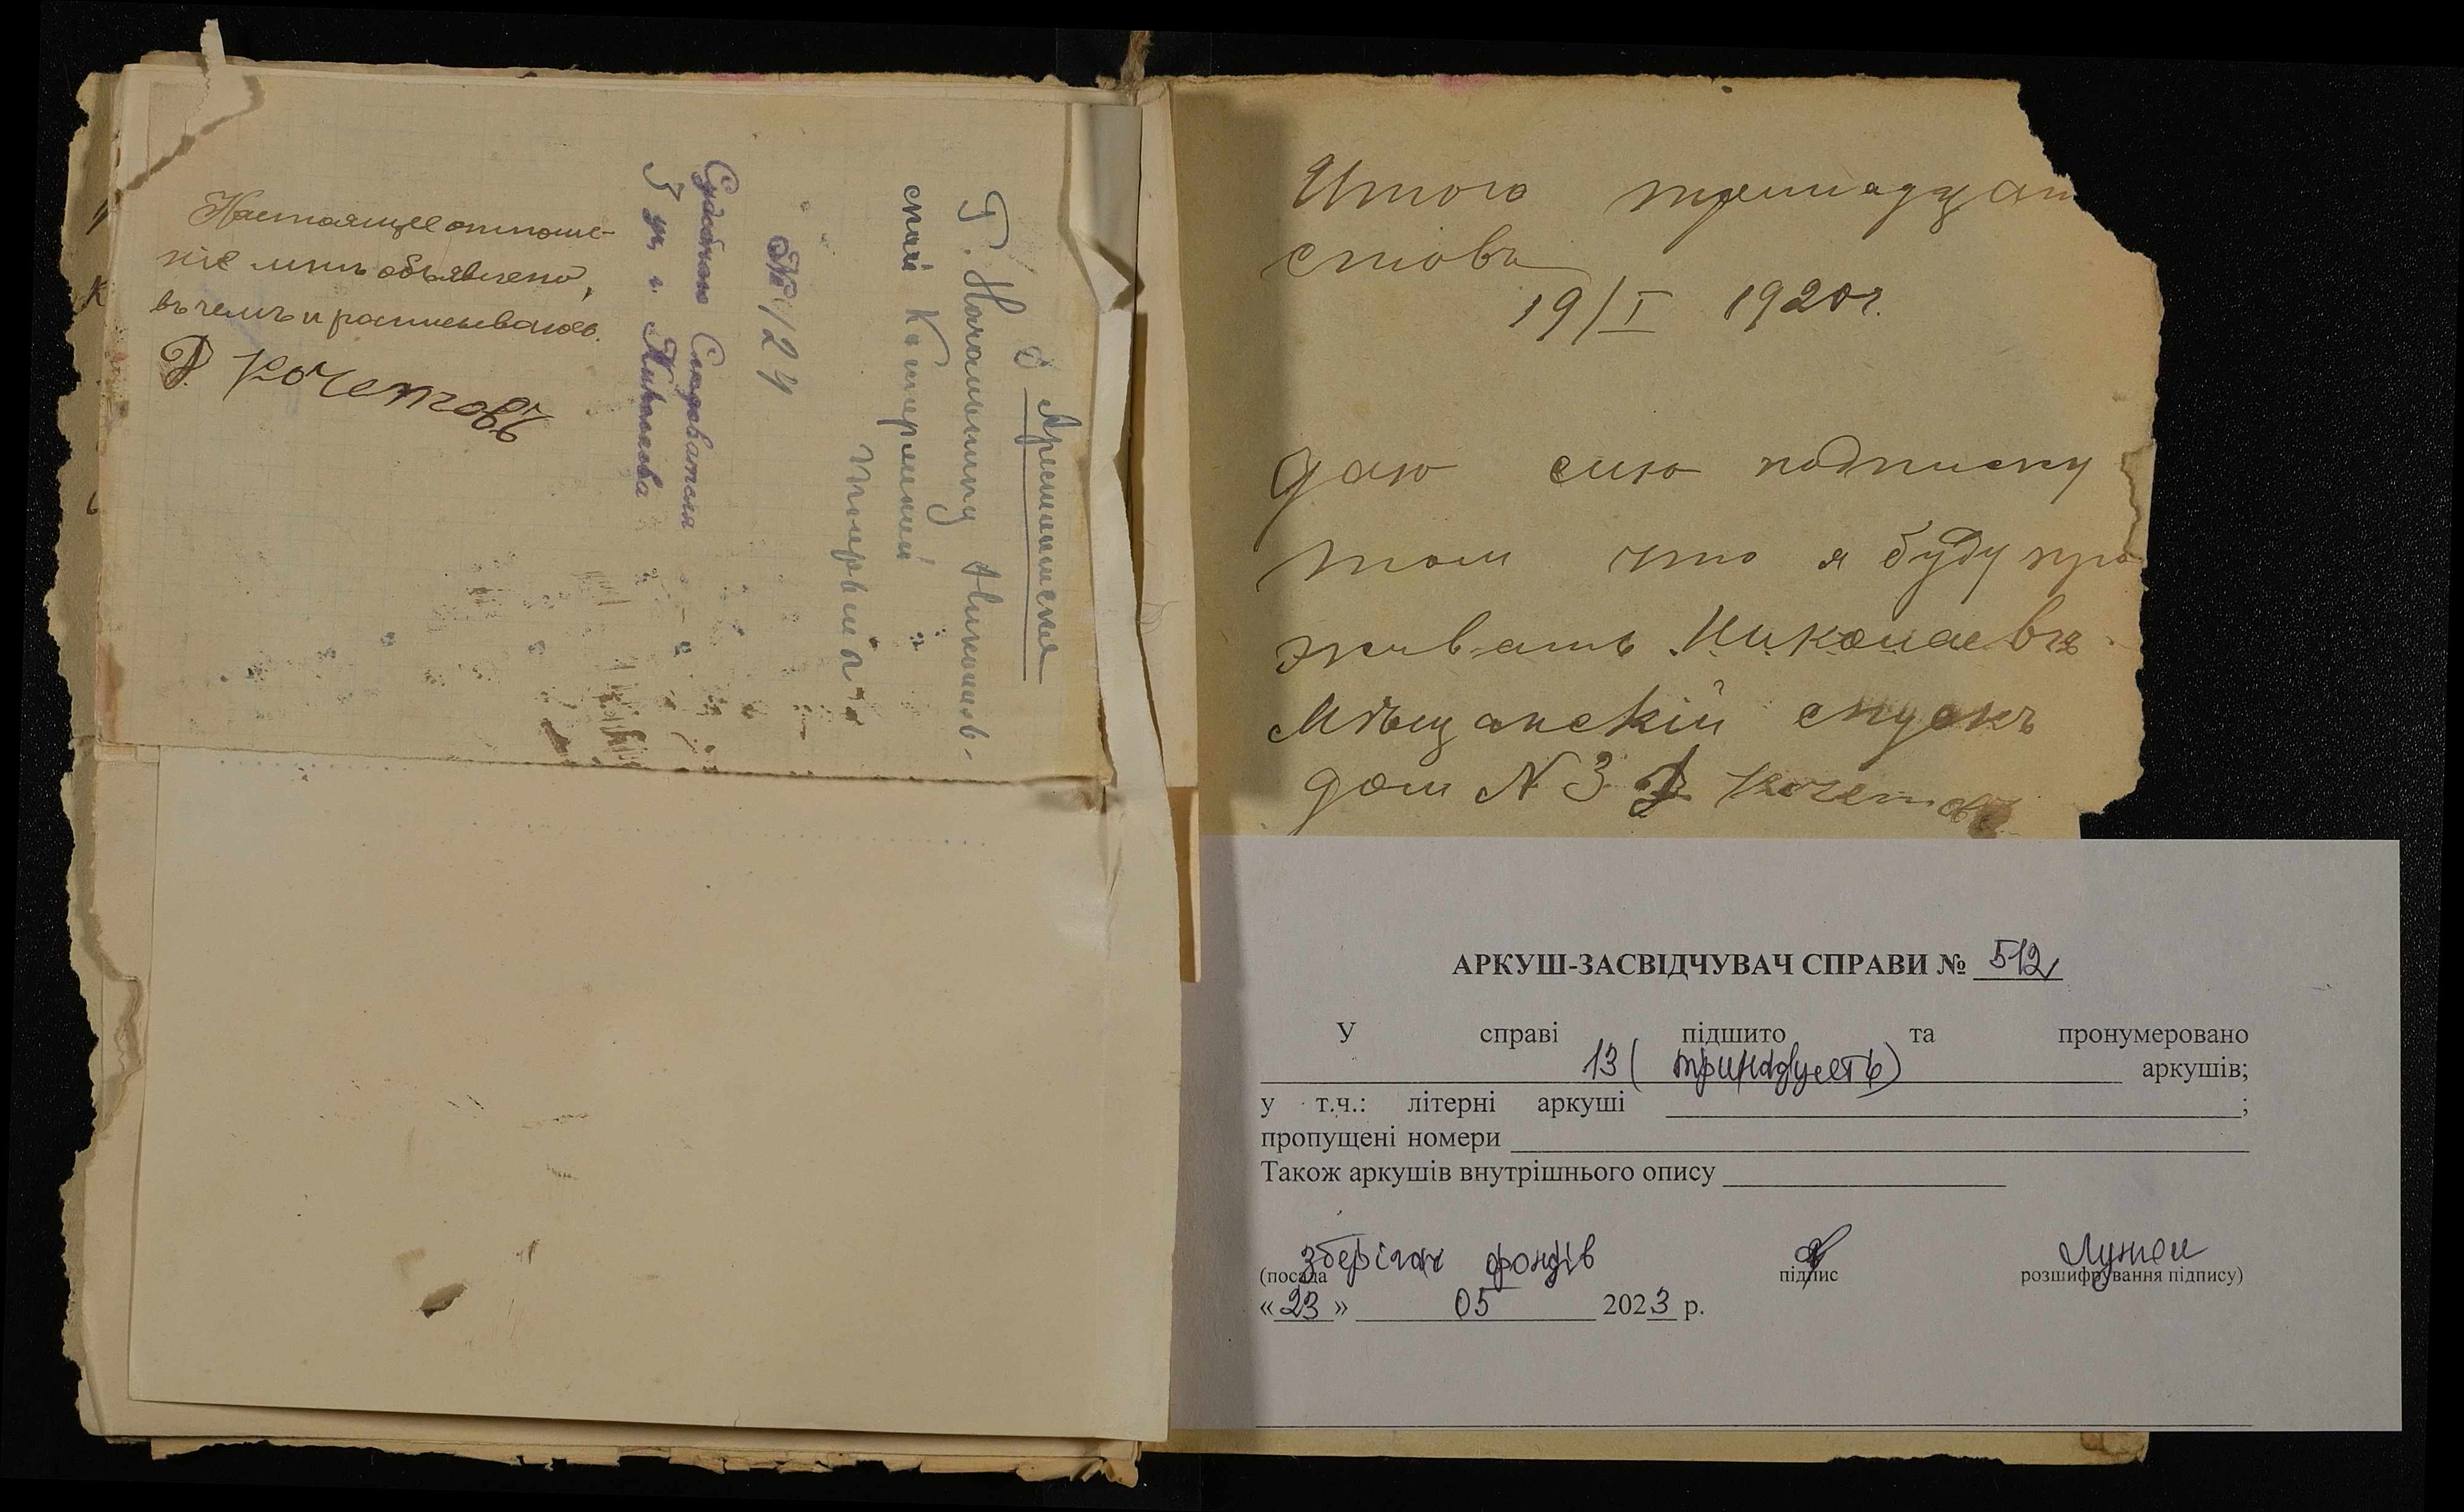 Настоящее отноше-
ніе мнѣ объявлено,
въ чемъ и расписываюсь.
Р Кочетовъ
О Арестантскя
Г. Начальнику Николаев-
ской Каторжной
Тюрьмы
№ 124
Судебного Следователя
5 уч. г. Николаева
Итого тринадцат
листовъ
19/I 1920г.
Даю сию подписку
том что я буду про
живать Николаевѣ
Мѣщанскій спускъ
дом N 3 Кочетовъ
АРКУШ-ЗАСВІДЧУВАЧ СПРАВИ № 512
У справі підшито та пронумеровано
13 (тринадцять) аркушів;
у т.ч.: літерні аркуші ;
пропущені номери
Також аркушів внутрішнього опису
зберігач фондів
(посада підпис розшифрування підпису)
« 23 » 05 2023 р.